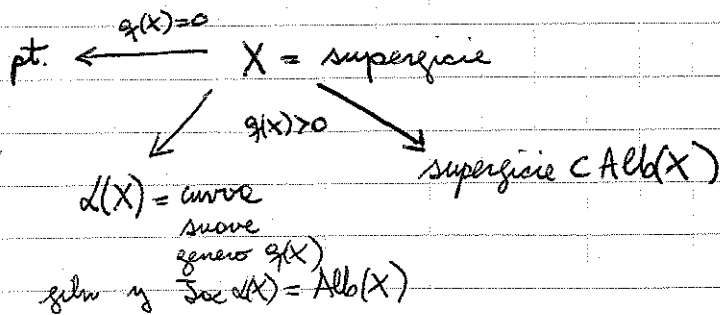 q(X)=0
pt. ← X = supergicie
q(X)>0
α(X) = curva
suave
genero q(X)
supergicie ⊂ Alb(X)
y Jac α(X) = Alb(X)